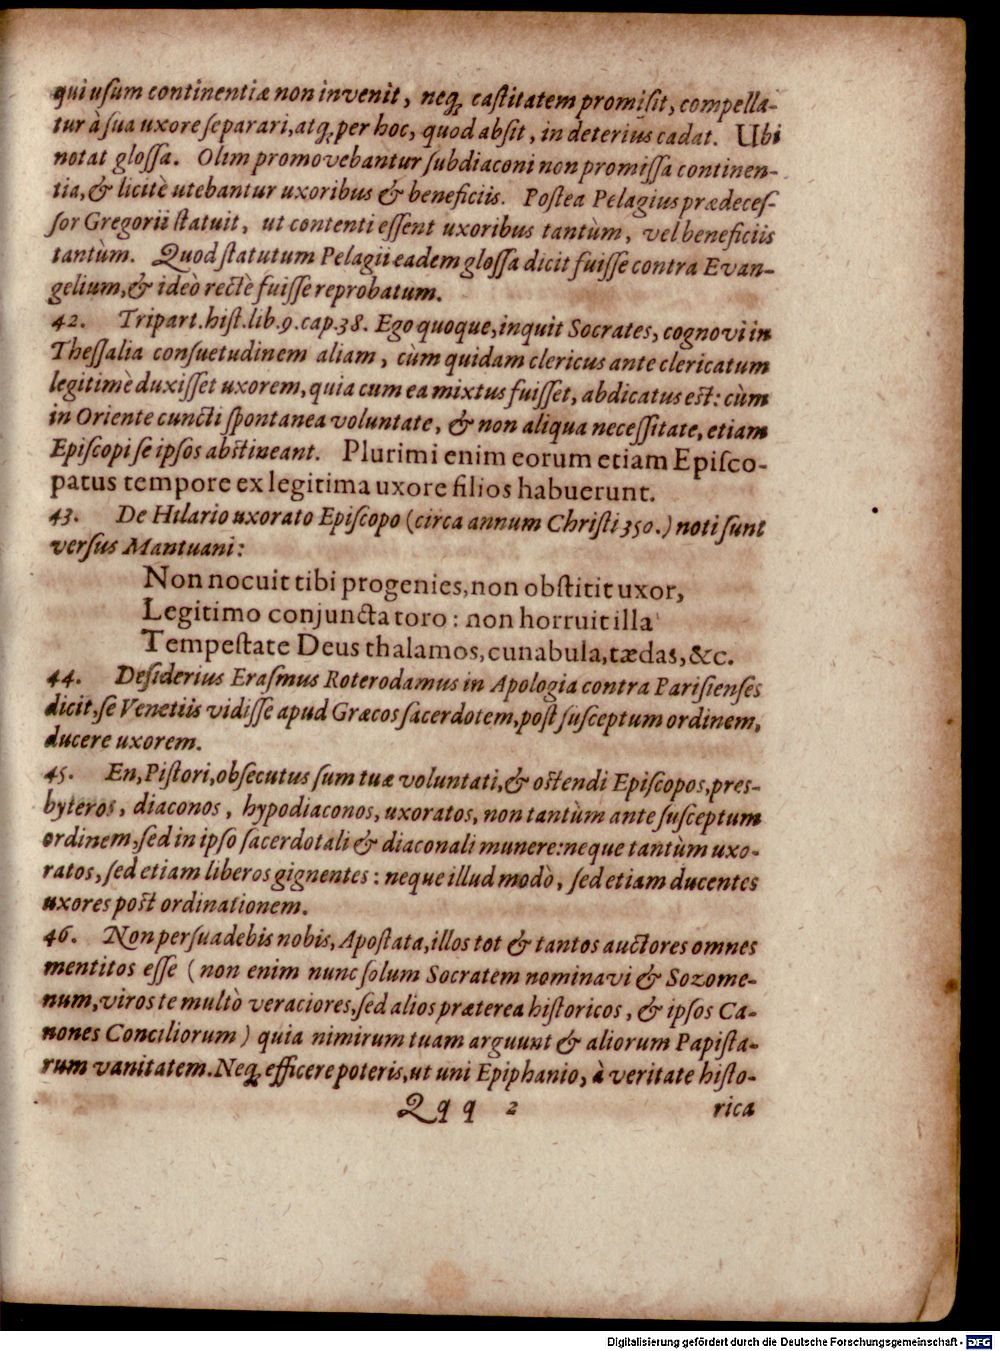 qui uſum continentiæ non invenit, neq́; caſtitatem promiſit, compella-
tur à ſua uxore ſeparari, atq́; per hoc, quod abſit, in deterius cadat. Ubi
notat gloſſa. Olim promovebantur ſubdiaconi non promiſſa continen-
tia, & licitè utebantur uxoribus & beneficiis. Poſtea Pelagius prædeceſ-
ſor Gregorii ſtatuit, ut contenti eſſent uxoribus tantùm, vel beneficiis
tantùm. Quod ſtatutum Pelagii eadem gloſſa dicit fuiſſe contra Evan-
gelium, & ideò rectè fuiſſe reprobatum.
42. Tripart. hiſt. lib. 9. cap. 38. Ego quoque, inquit Socrates, cognovi in
Theſſalia conſuetudinem aliam, cùm quidam clericus ante clericatum
legitimè duxiſſet uxorem, quia cum ea mixtus fuiſſet, abdicatus eſt: cùm
in Oriente cuncti ſpontanea voluntate, & non aliqua neceſſitate, etiam
Epiſcopi ſe ipſos abſtineant. Plurimi enim eorum etiam Epiſco-
patus tempore ex legitima uxore filios habuerunt.
43. De Hilario uxorato Epiſcopo (circa annum Chriſti 350.) noti ſunt
verſus Mantuani:
Non nocuit tibi progenies, non obſtitit uxor,
Legitimo conjuncta toro: non horruit illa
Tempeſtate Deus thalamos, cunabula, tædas, &c.
44. Deſiderius Eraſmus Roterodamus in Apologia contra Pariſienſes
dicit, ſe Venetiis vidiſſe apud Græcos ſacerdotem, poſt ſuſceptum ordinem,
ducere uxorem.
45. En, Piſtori, obſecutus ſum tuæ voluntati, & oſtendi Epiſcopos, pres-
byteros, diaconos, hypodiaconos, uxoratos, non tantùm ante ſuſceptum
ordinem, ſed in ipſo ſacerdotali & diaconali munere: neque tantùm uxo-
ratos, ſed etiam liberos gignentes: neque illud modò, ſed etiam ducentes
uxores poſt ordinationem.
46. Non perſuadebis nobis, Apoſtata, illos tot & tantos auctores omnes
mentitos eſſe (non enim nunc ſolum Socratem nominavi & Sozome-
num, viros te multò veraciores, ſed alios præterea hiſtoricos, & ipſos Ca-
nones Conciliorum) quia nimirum tuam arguunt & aliorum Papiſta-
rum vanitatem. Neq́; efficere poteris, ut uni Epiphanio, à veritate hiſto-
Qqq 2 rica
Digitalisierung gefördert durch die Deutsche Forschungsgemeinschaft - DFG